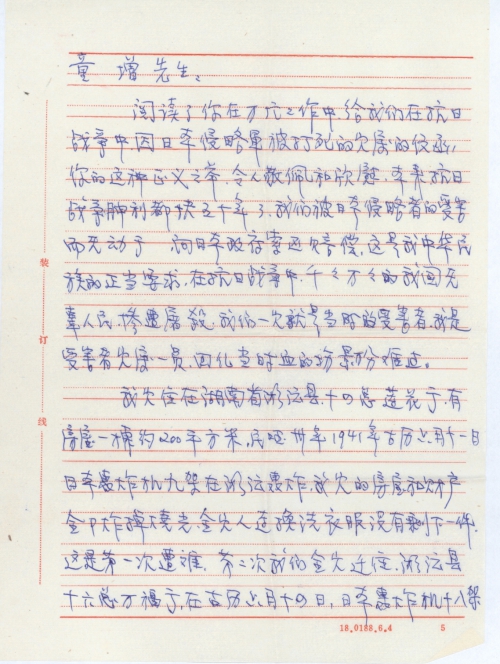 童增先生：
阅读了你在百忙之作中，给我们在抗日
战争中因日本侵略军被打死的家属的信函，
你的这种正义之举，令人敬佩和欣慰，本来抗日
战争胜利都快五十年了，我们被日本侵略者的受害
而无动于 向日本政府索还欠偿，这是我中华民
族的正当要求，在抗日战争中，千千万万的我国无
辜人民，惨遭屠殺，我们一家就是当时的受害者，我是
受害者家属一员，回忆当时血的场景份难过。
我家住在湖南省湘潭县十四总莲花于，有
房屋一栋约200平方米，民国卅年1941年古历六月十一日
日本轰炸机九架在湘潭轰炸，我家的房屋和财产
全卩炸掉烧光，全家人连换洗衣服没有剩下一件，
这是第一次遭难，第二次我们全家迁住，湘潭县
十六总万福于，在古历六月十四日，日本轰炸机十八架
装
订
线
18.0188.6.4
5